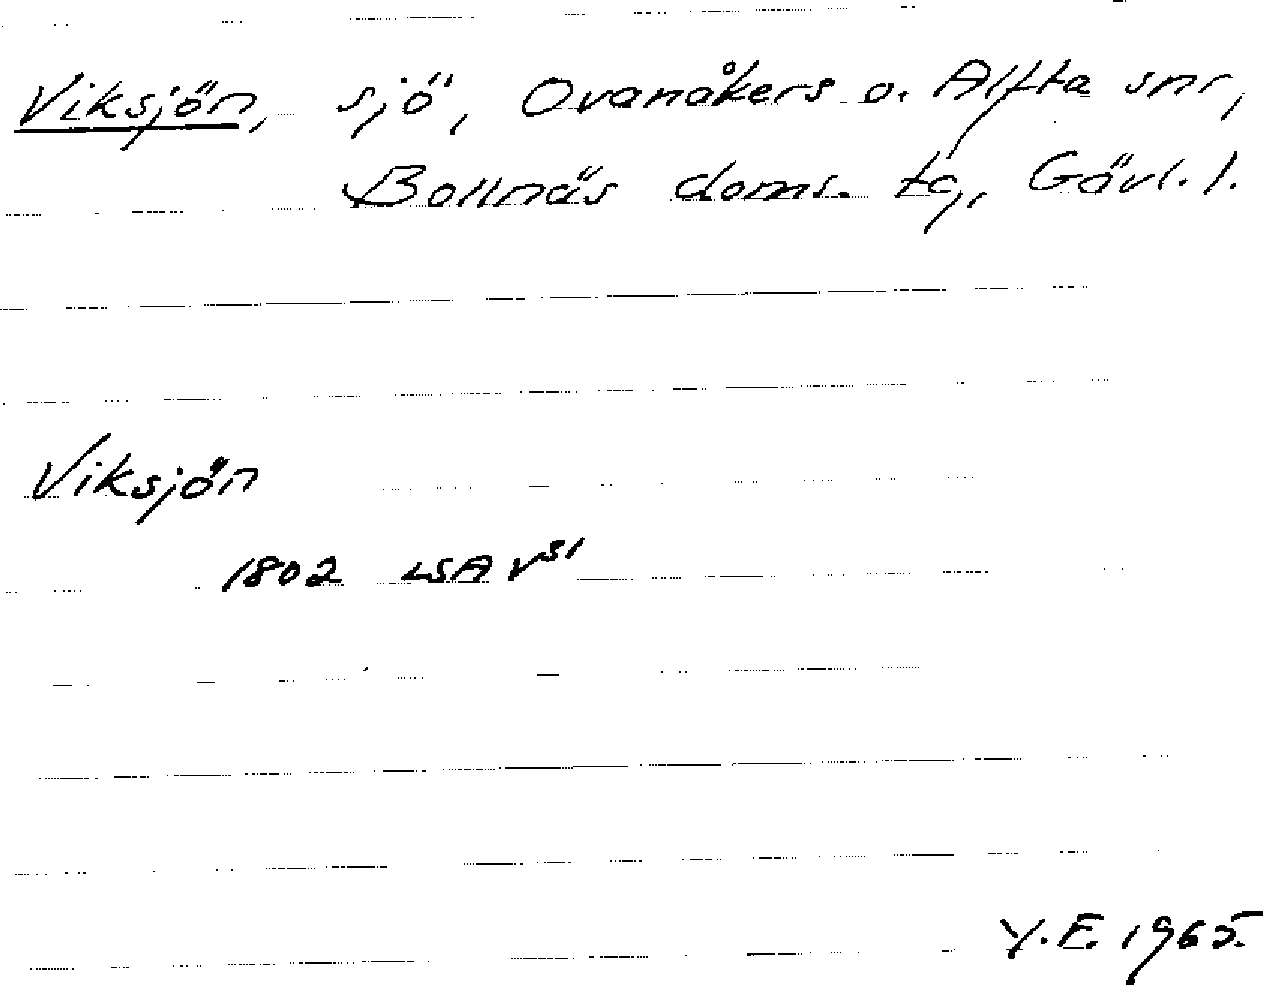 Viksjön, sjö, Ovanåkers o. Alfta snr,
Bollnäs doms. tg, Gävl. l.
Viksjön
1802 LSA V31
Y.E. 1965.